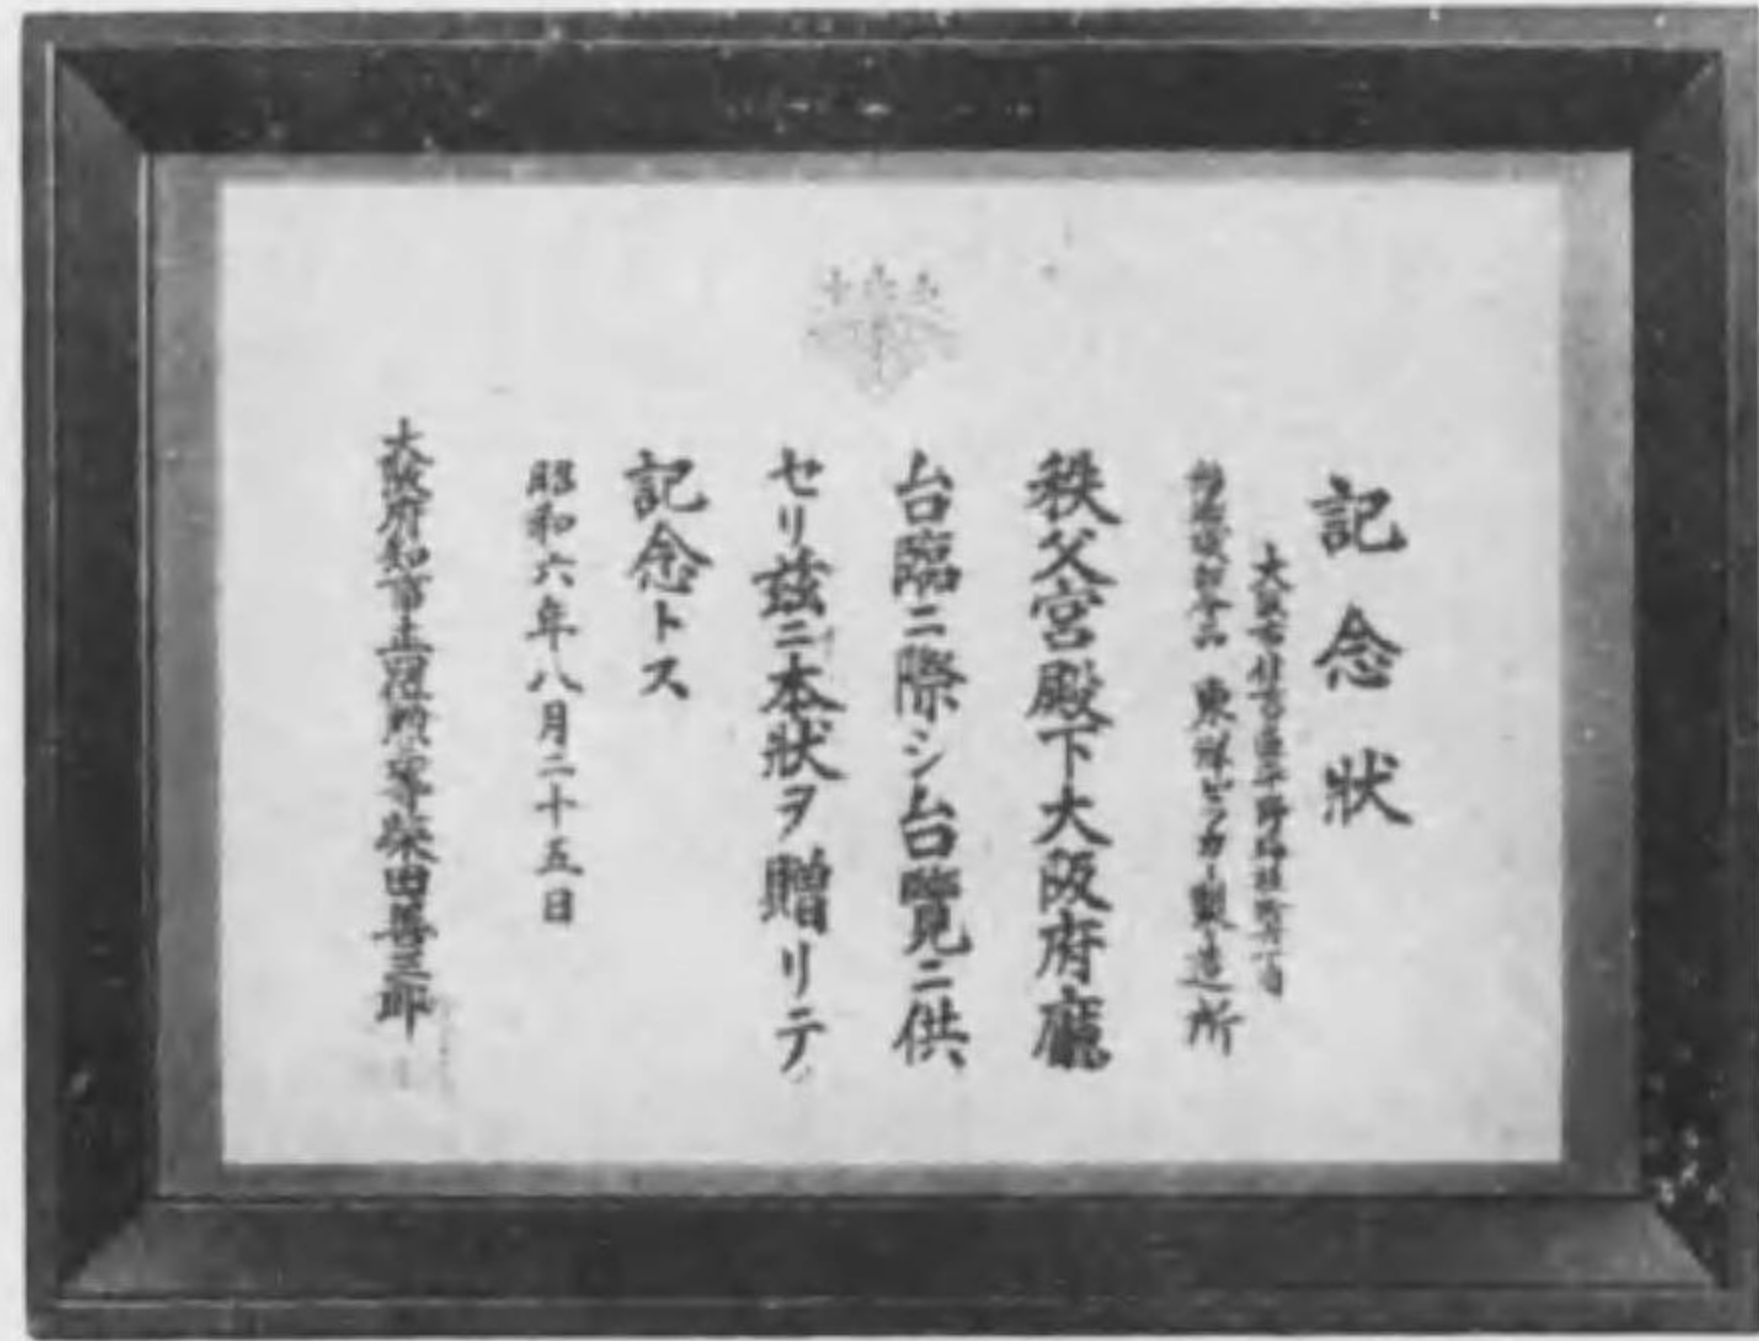 記念狀
大阪市住吉區平野
東洋ピッカー製造所
秩父宮殿下大阪府廳
台臨ニ際シ台覽ニ供
セリ茲ニ本狀ヲ贈リテ
記念トス
昭和六年八月二十五日
大阪府知事正四位勲等柴田善三郎